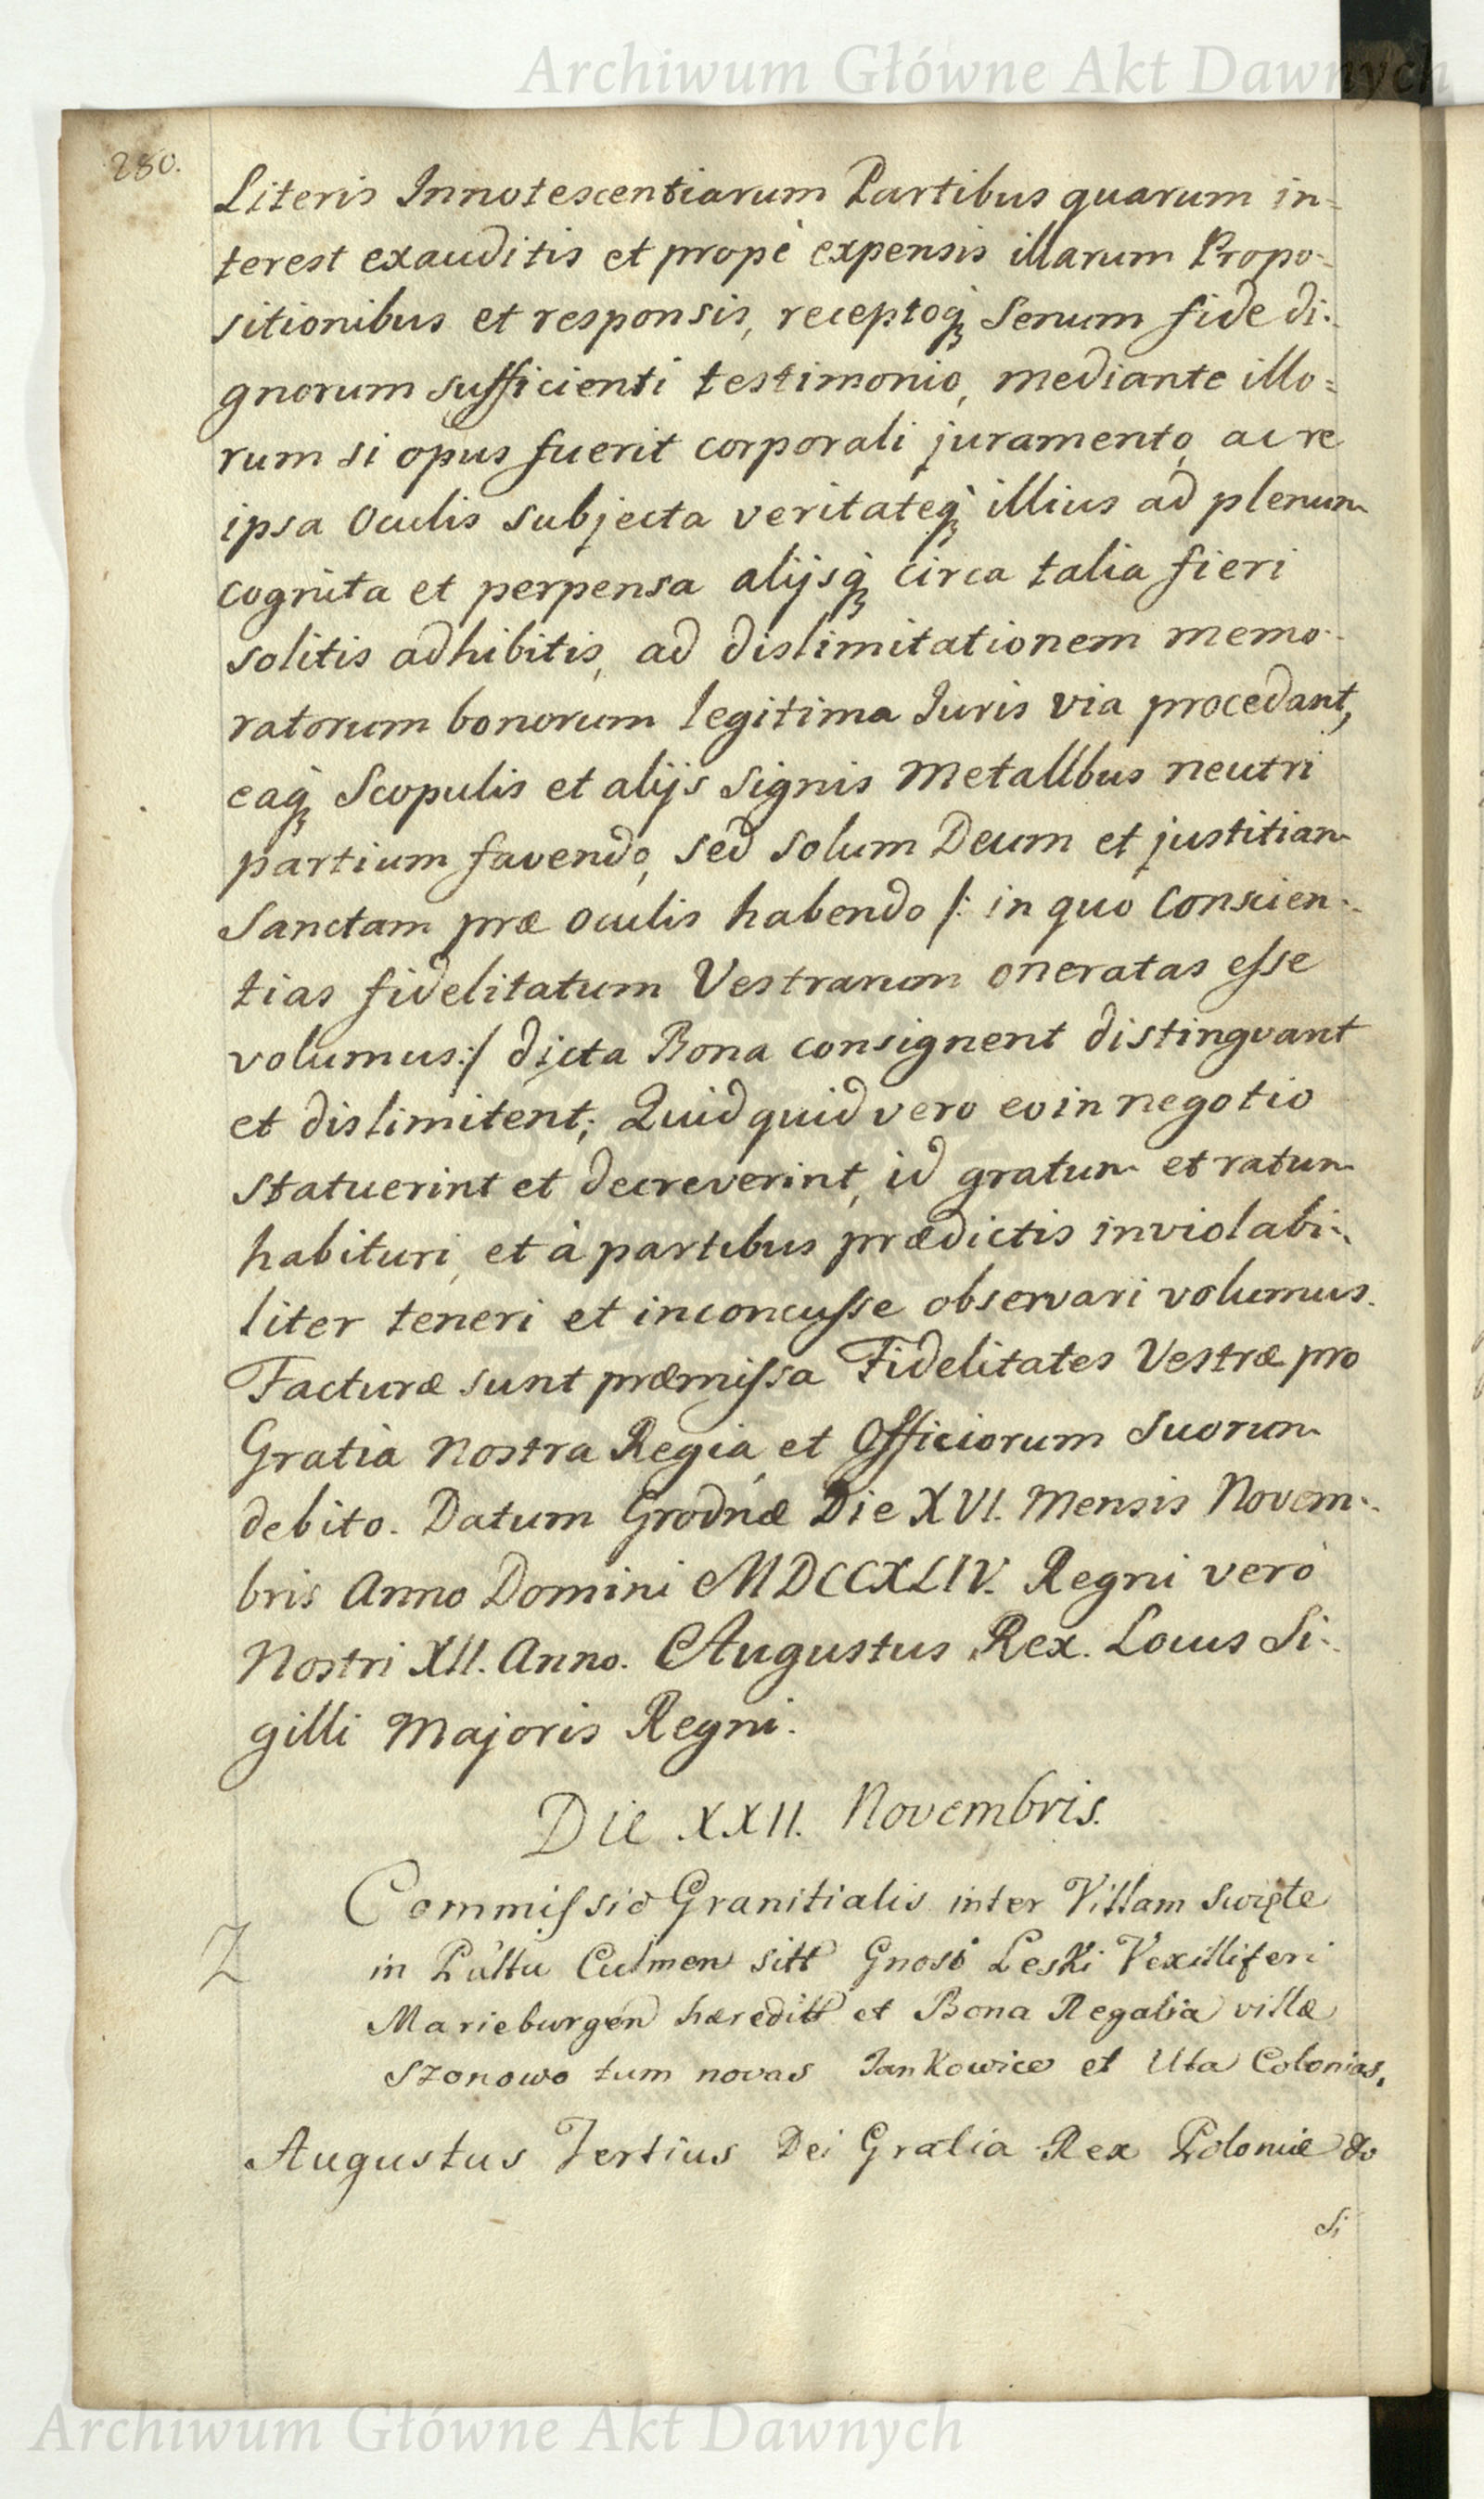 Archiwum Główne Akt Dawnych
280.
Literis Innotescentiarum Partibus quarum in-
terest exauditis et propè expensis illarum Propo-
sitionibus et responsis, receptoq; Senum fide di-
gnorum sufficienti testimonio, mediante illo=
rum si opus fuerit corporali juramento, ac re
ipsa Oculis subjecta veritateq; illius ad plenum
cognita et perpensa alijsq; circa talia fieri
solitis adhibitis, ad dislimitationem memo-
ratorum bonorum legitima Juris via procedant,
eaq; Scopulis et alijs signis Metallbus neutri
partium favendo, sed solum Deum et justitiam
Sanctam præ oculis habendo /: in quo Conscien-
tias fidelitatum Vestrarum oneratas esse
volumus:/ dicta Bona consignent distingvant
et dislimitent; Quidquid vero eo in negotio
statuerint et decreverint, id gratum et ratum
habituri, et à partibus prædictis inviolabi-
liter teneri et inconcusse observari volumus.
Facturæ sunt præmissa Fidelitates Vestræ pro
Gratia Nostra Regia, et Officiorum Suorum
debito. Datum Grodnæ Die XVI. Mensis Novem-
bris Anno Domini MDCCXLIV. Regni verò
Nostri XII. Anno. Augustus Rex. Locus Si-
gilli Majoris Regni.
Die XXII. Novembris.
Commissio Granitialis inter Villam Swięte
in Pałtu Culmen sitt Gnosi Leski Vexilliferi
Marieburgen hæreditt et Bona Regalia villæ
Szonowo tum novas Jankowice et Uta Colonias.
Augustus Tertius Dei Gratia Rex Poloniæ &
Si
Archiwum Główne Akt Dawnych